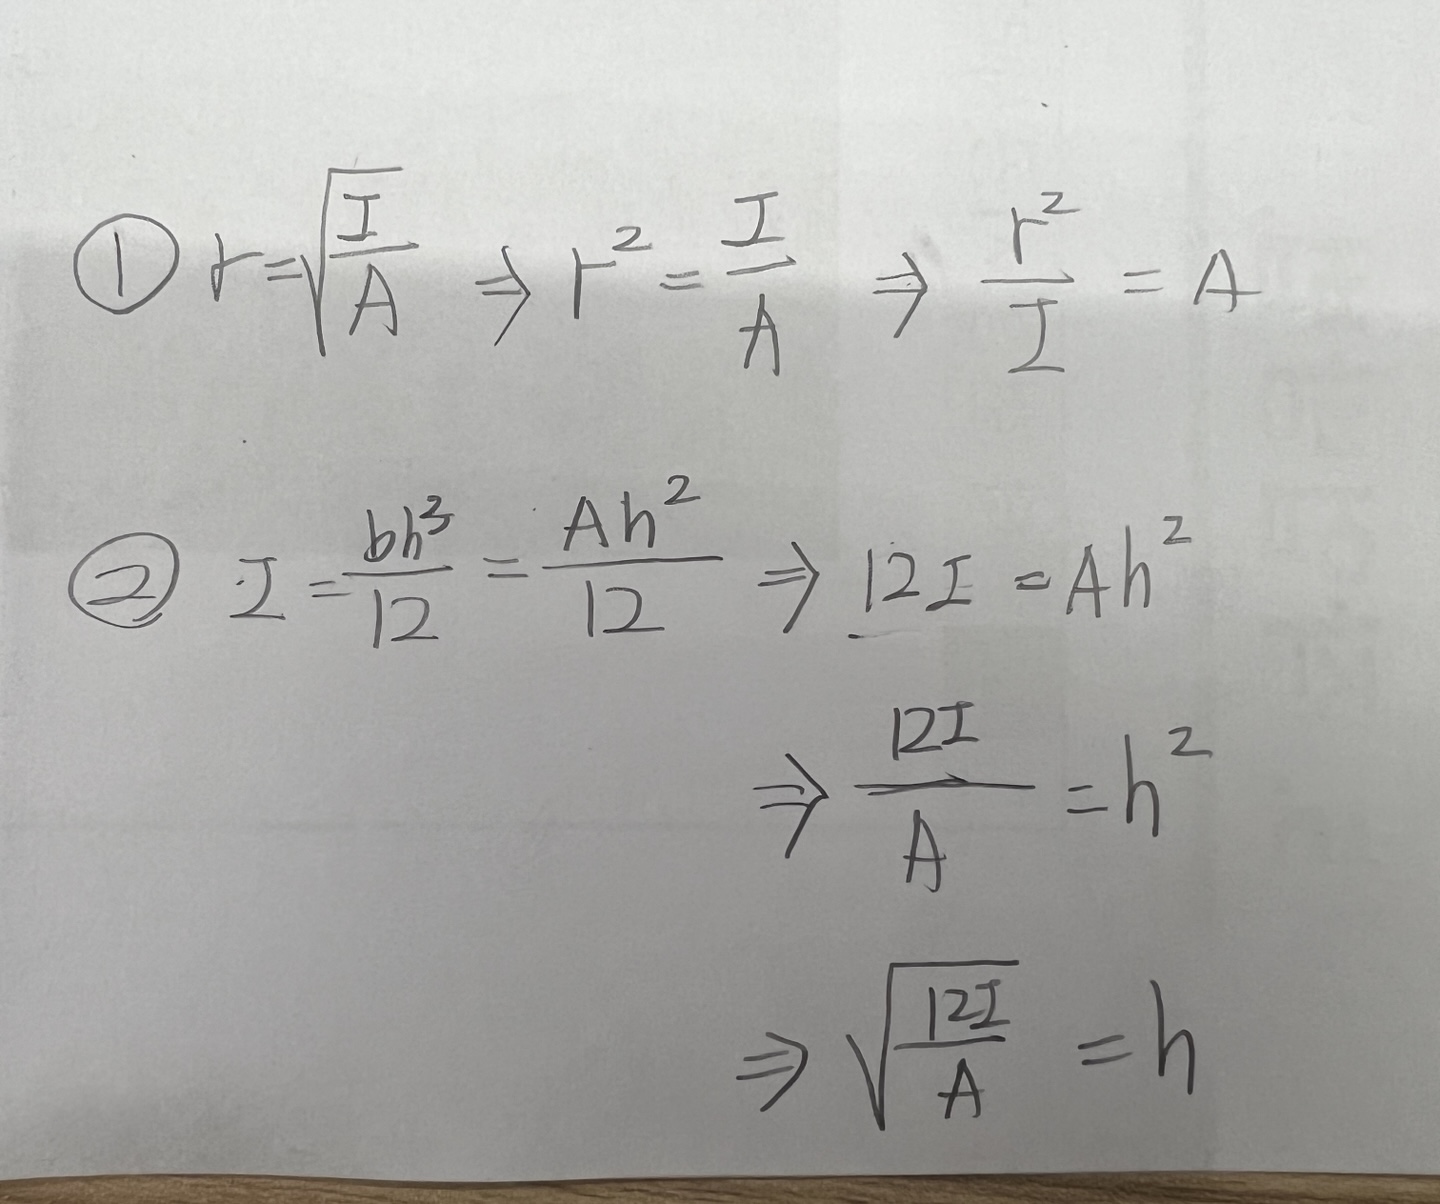 ① r=√(I/A) ⇒ r² = I/A ⇒ r²/I = A
② I = bh³/12 = Ah²/12 ⇒ 12I = Ah²
⇒ 12I/A = h²
⇒ √(12I/A) = h